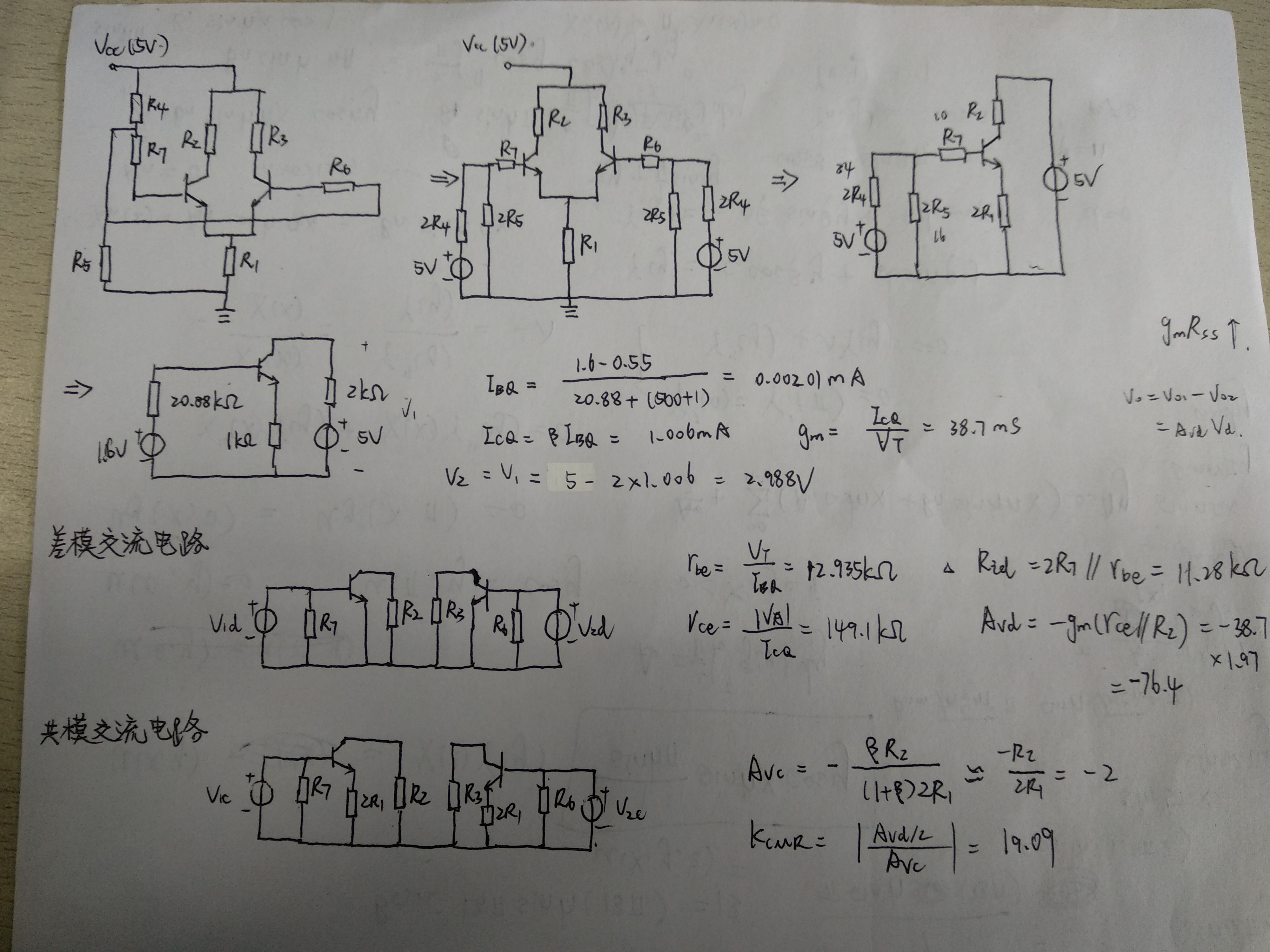 Vcc(5V)
R4
R7
R2
R3
R6
R5
R1
⇒
Vcc(5V)
R2
R3
R7
R6
2R4
2R5
2R5
2R4
R1
5V
5V
⇒
10
R7
R2
34
2R4
2R5
16
2R1
5V
5V
⇒
20.88kΩ
1kΩ
2kΩ
1.6V
5V
V1
IBQ = (1.6-0.55)/(20.88+(500+1)) = 0.00201mA
ICQ = βIBQ = 1.006mA
gm = ICQ/VT = 38.7mS
V2 = V1 = 5-2×1.006 = 2.988V
gmRss↑.
Vo=Vo1-Vo2
=AvdVd.
差模交流电路
V1d
R7
R2
R3
R6
V2d
rbe = VT/IBQ = 12.935kΩ
△ Rid = 2R7//rbe = 11.28kΩ
rce = |VA|/ICQ = 149.1kΩ
Avd = -gm(rce//R2) = -38.7
×1.97
=-76.4
共模交流电路
V1c
R7
2R1
R2
R3
2R1
R6
V2c
Avc = - βR2/((1+β)2R1) ≈ -R2/2R1 = -2
KCMR = |(Avd/2)/Avc| = 19.09